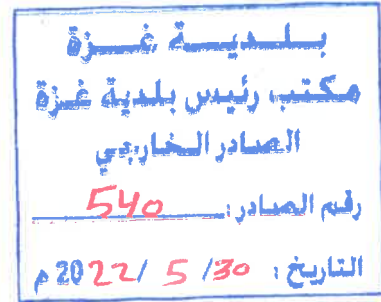 بلدية غزة
مكتب رئيس بلدية غزة
الصادر الخارجي
رقم الصادر: 540
التاريخ: 30/ 5 /2022 م